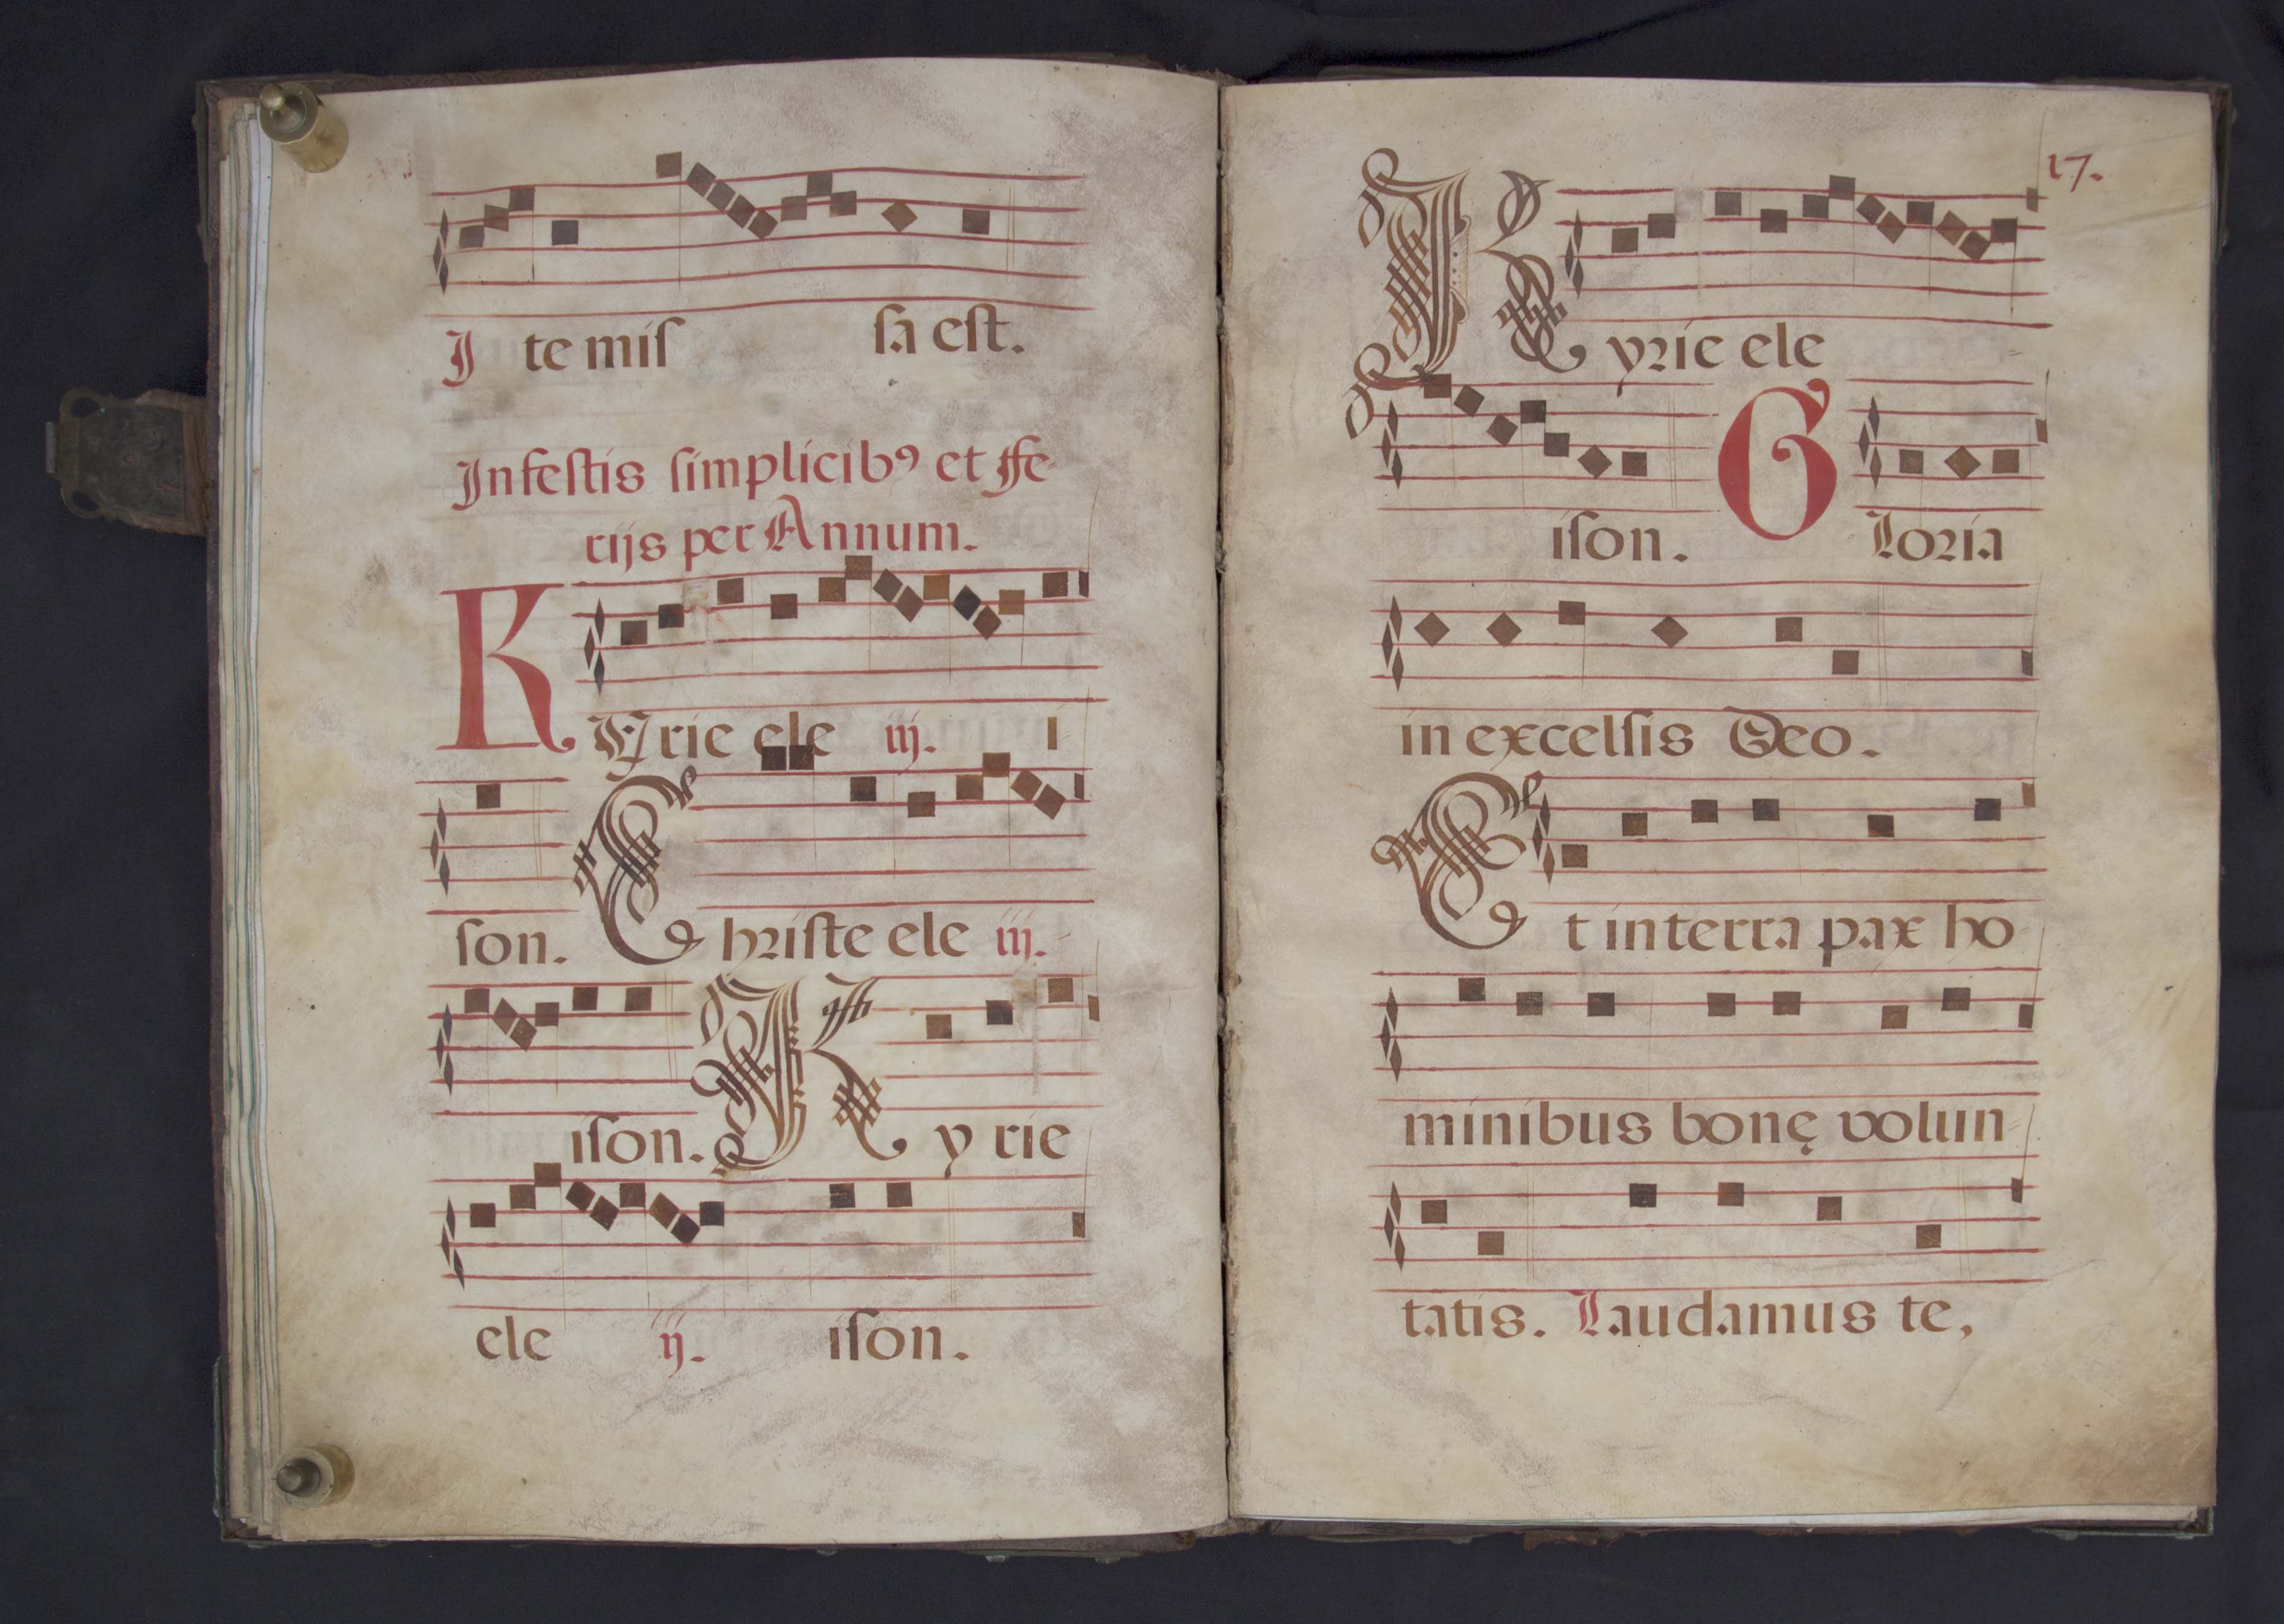 I te miſ ſa eſt.
In feſtis ſimplicibꝰ et Fe-
rijs per Annum.
KYrie ele iij. i
ſon. Chriſte ele iij.
iſon. Ky rie
ele ij. iſon.
17.
Kyrie ele-
iſon. Gloria
in excelſis Deo.
Et in terra pax ho-
minibus bonę volun-
tatis. Laudamus te,